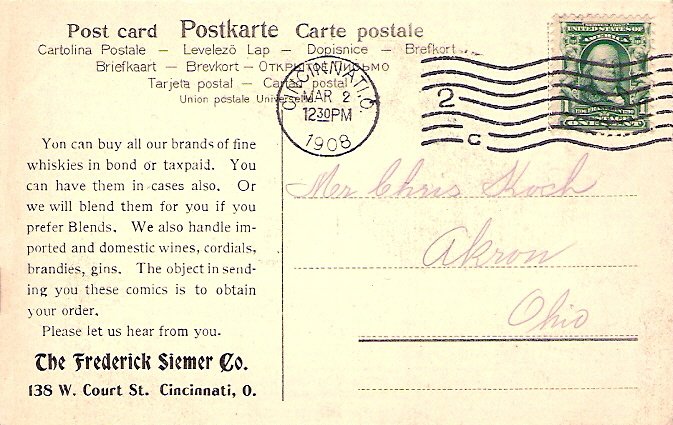 Post card Postkarte Carte postale
Cartolina Postale — Levelező Lap — Dopisnice — Brefkort
Briefkaart — Brevkort — Открытое письмо
Tarjeta postal — Cartão postal
Union postale Universelle
CINCINNATI, O.
MAR 2
12 30 PM
1908
2
C
UNITED STATES OF
AMERICA
You can buy all our brands of fine
whiskies in bond or taxpaid. You
can have them in cases also. Or
we will blend them for you if you
prefer Blends. We also handle im-
ported and domestic wines, cordials,
brandies, gins. The object in send-
ing you these comics is to obtain
your order.
Please let us hear from you.
The Frederick Siemer Co.
138 W. Court St. Cincinnati, O.
Mr Chris Koch
Akron
Ohio